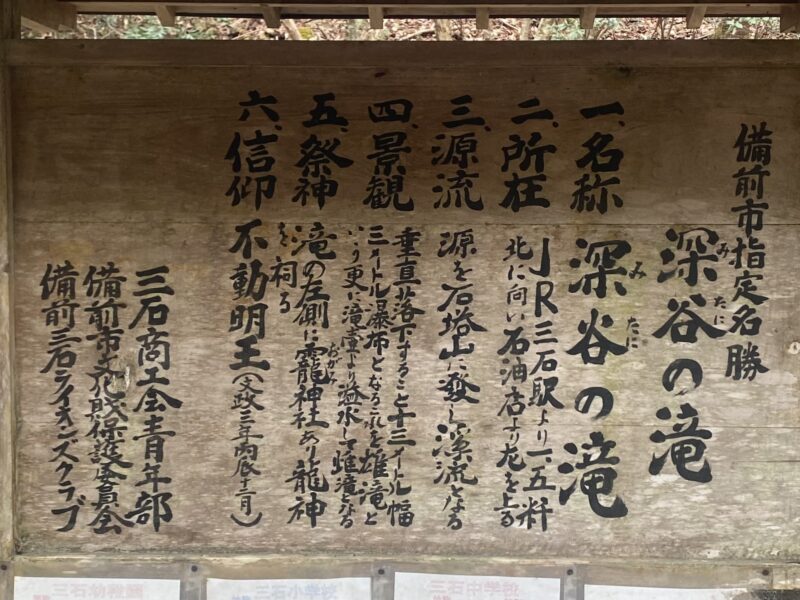 備前市指定名勝
深谷の滝
みたに
一、名称 深谷の滝
みたに
二、所在 JR三石駅より一、五粁
北に向い石油店より左を上る
三、源流 源を石塔山に発し渓流となる
四、景観 垂直落下すること十三メートル幅
三メートル瀑布となるこれを雄滝と
いう更に滝壺より溢水して雌滝となる
五、祭神 滝の左側に龗神社あり龍神
おかみ
を祠る
六、信仰 不動明王(文政三年丙辰十二月)
三石商工会青年部
備前市文化財保護委員会
備前三石ライオンズクラブ
三石幼稚園
三石小学校
三石中学校